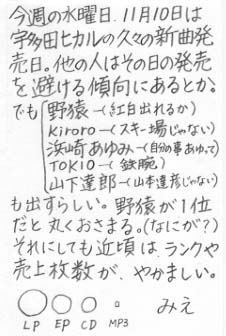 今週の水曜日、11月10日は
宇多田ヒカルの久々の新曲発
売日。他の人はその日の発売
を避ける傾向にあるとか。
でも 野猿―(紅白出れるか)
Kiroro―(スキー場じゃない)
浜崎あゆみ―(自分の事あゆって)
TOKIO―(鉄腕)
山下達郎―(山本達彦じゃない)
も出すらしい。野猿が1位
だと丸くおさまる。(なにが?)
それにしても近頃は、ランクや
売上枚数が、やかましい。
LP EP CD MP3 みえ